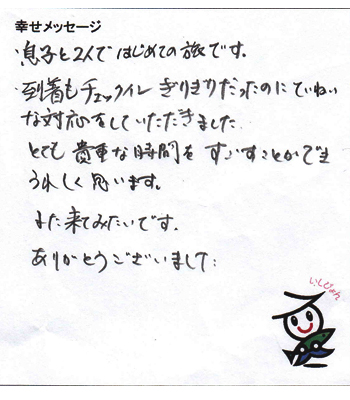 幸せメッセージ
息子と2人ではじめての旅です。
到着もチェックインぎりぎりだったのにていねい
な対応をしていただきました
とても貴重な時間をすごすことができ
うれしく思います。
また来てみたいです.
ありがとうございました:
いしぴょん